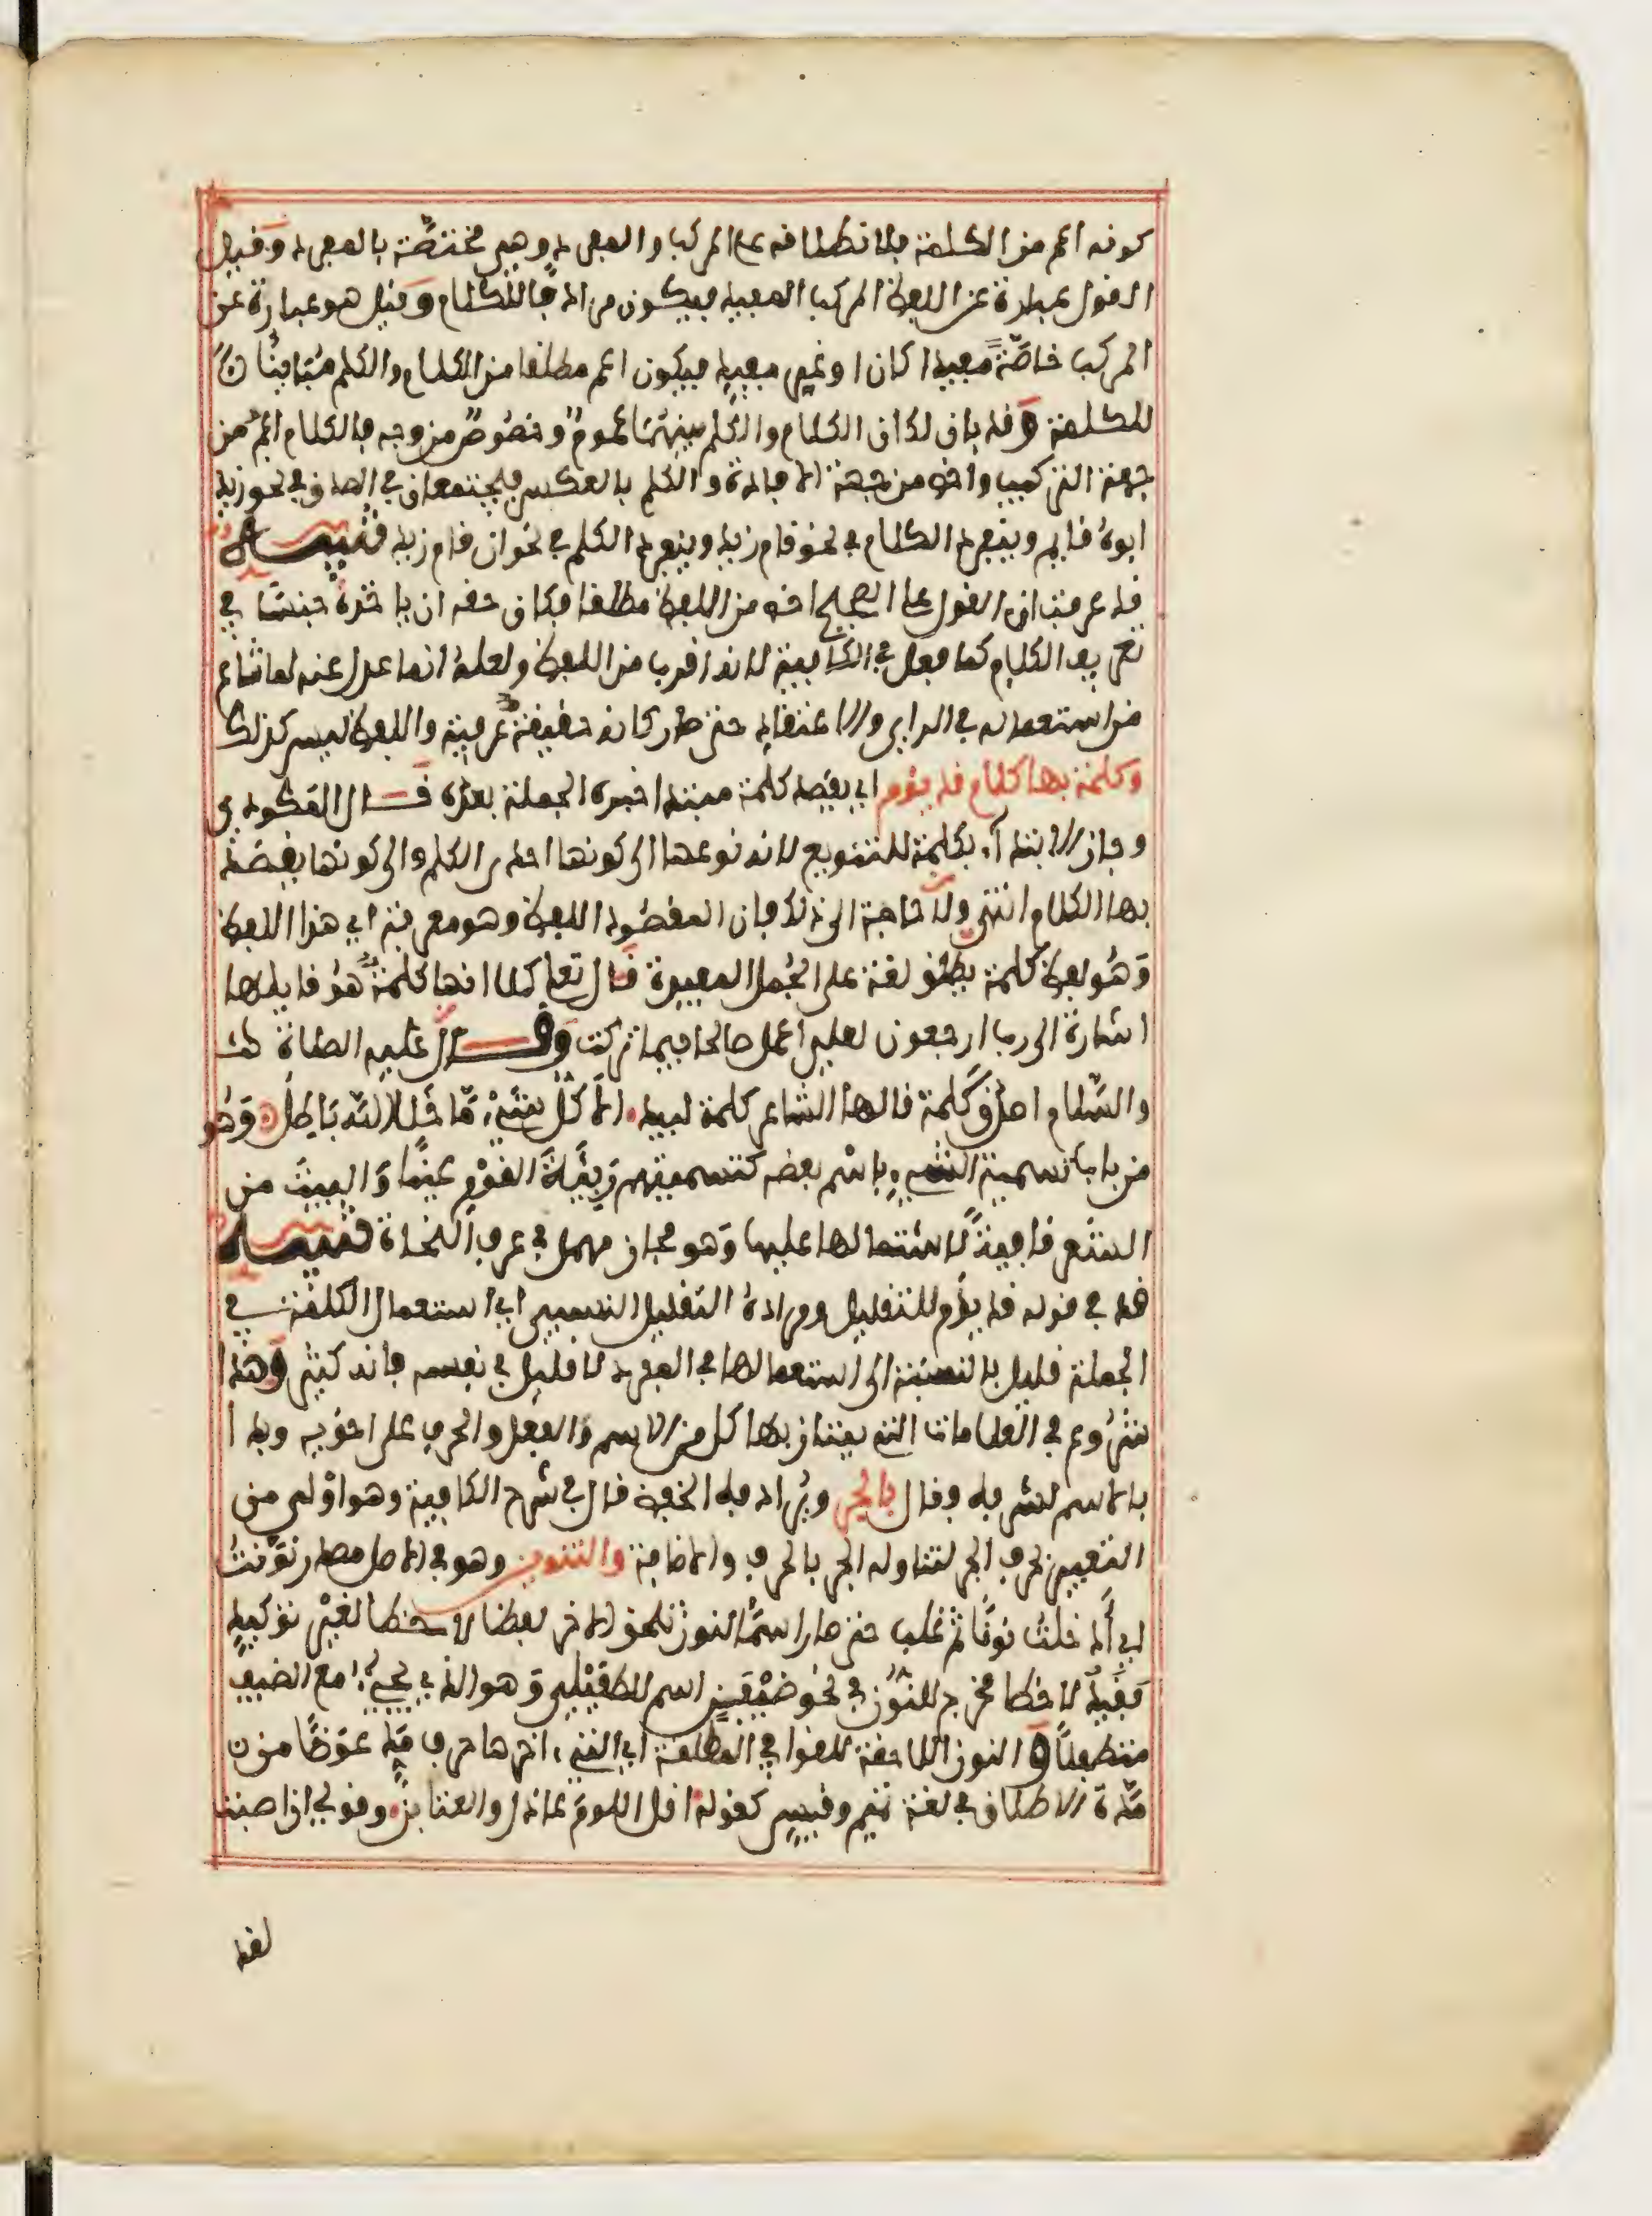 كونه اعم من الكلمة فلانطلاقه على المركب والمفرد وهي مختصّة بالمفرد وقيل
القول عبارة عن اللفظ المركب المفيد فيكون مرادفا للكلام وقيل هو عبارة عن
المركب خاصّةً مفيدا كان او غير مفيد فيكون اعم مطلقا من الكلام والكلم مُبَاينًا
للكلمة وقد بان لك ان الكلام والكلم بينهمَا عُمومٌ وخصُوصٌ من وجه فالكلام اعمُّ من
جهة التركيب واخص من جهة الافادة والكلم بالعكس فيجتمعان في الصدق في نحو زيد
ابوهُ قايم وينفرد الكلام في نحو قام زيد وينفرد الكلم في نحو ان قام زيد تنبيه
قد عرفت ان القول على الصحيح اخص من اللفظ مطلقا فكان حقه ان ياخذهُ جنسًا في
تعريف الكلام كما فعل في الكافية لانه اقرب من اللفظ ولعلهُ انما عدل عنه لما شاع
من استعماله في الراي والاعتقاد حتى صار كانه حقيقةٌ عرفية واللفظ ليس كذلك
وكلمة بها كلام قد يؤم اي يقصد كلمة مبتدا خبره الجملة بعده قال المكودي
وجاز الابتدآء بكلمة للتنويع لانه نوعها الى كونها احدى الكلم والى كونها يقصد
بها الكلام انتهى ولا حاجة الى ذلك فان المقصُود اللفظ وهو معرفة اي هذا اللفظ
وَهُو لفظ كلمة يطلق لغة على الجُمل المفيدة قال تعلى كلا انها كلمةٌ هُو قايلها
اشارة الى رب ارجعون لعلي اعمل صالحا فيما تركت وقال عليه الصلاة
والسّلام اصدَق كلمة قالها الشاعر كلمة لبيد الا كل شيْءٍ مَا خلا الله بَاطِل وَهُو
من باب تسمية الشيء باسْم بعضه كتسميتهم رَبِيئَةَ القوْم عينًا وَالبيت من
الشعر قافيةً لاشتمالها عليها وَهو مجاز مهمل في عرف النحاة تنبيه
قد في قوله قد يؤم للتقليل ومرادهُ التقليل النسبي اي استعمال الكلمة في
الجملة قليل بالنسبة الى استعمالها في المفرد لا قليل في نفسه فانه كثير وهذا
شُرُوع في العلامات التي يمتاز بها كل من الاسم وَالفعل والحرف على اخويه وبدا
بالاسم لشرفه وقال بالجر ويُرادفه الخفض قال في شرح الكافية وهو اولى من
التعبير بحرف الجر لتناوله الجر بالحرف والاضافة والتنوين وهو في الاصل مصدر نَوّنتُ
اي أدخلتُ نونًا ثم غلب حتى صار اسمًا لنون تلحق الاخر لفظا لا خطا لغيْر توكيدٍ
فقيْد لا خطا مخرج للنوُن في نحو ضَيْفَنٍ اسم للطفَيْلي وَهو الذي يجيءُ مع الضيف
متطفلاً والنون اللاحقة للقوافي المطلقة اي التي اخرها حرف مَدّ عِوَضًا من
مَدّة الاطلاق في لغة تميم وقيس كقوله اقل اللومَ عاذل والعتابن وقولي ان اصبت
لقد